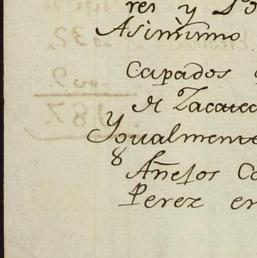 res y
Asimismo
Capados
de Zacatec
Ygualmente
8
Añejos Co
Perez en